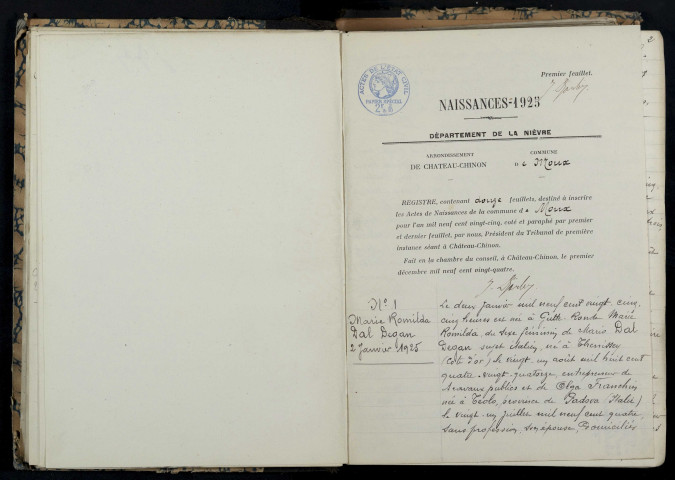 Premier feuillet.
ACTES DE L'ÉTAT CIVIL
PAPIER SPÉCIAL
NAISSANCES-1925
DÉPARTEMENT DE LA NIÈVRE
ARRONDISSEMENT
DE CHATEAU-CHINON
COMMUNE
De Moux
REGISTRE, contenant douze feuillets, destiné à inscrire
les Actes de Naissances de la commune de Moux
pour l'an mil neuf cent vingt-cinq, coté et paraphé par premier
et dernier feuillet, par nous, Président du Tribunal de première
instance séant à Château-Chinon.
Fait en la chambre du conseil, à Château-Chinon, le premier
décembre mil neuf cent vingt-quatre.
N° 1
Marie Romilda
Dal Degan
2 Janvier 1925
Le deux janvier mil neuf cent vingt cinq,
cinq heures est née à Gutte Ronde Marie
Romilda, du sexe féminin, de Mario Dal
Degan sujet Italien, né à Thenissey
(Côte d'or) le vingt un août mil huit cent
quatre-vingt-quatorze, entrepreneur de
travaux publics et de Olga Franchin
née à Teolo, province de Padova (Italie)
le vingt-un juillet mil neuf cent quatre
sans profession, son épouse, domiciliés